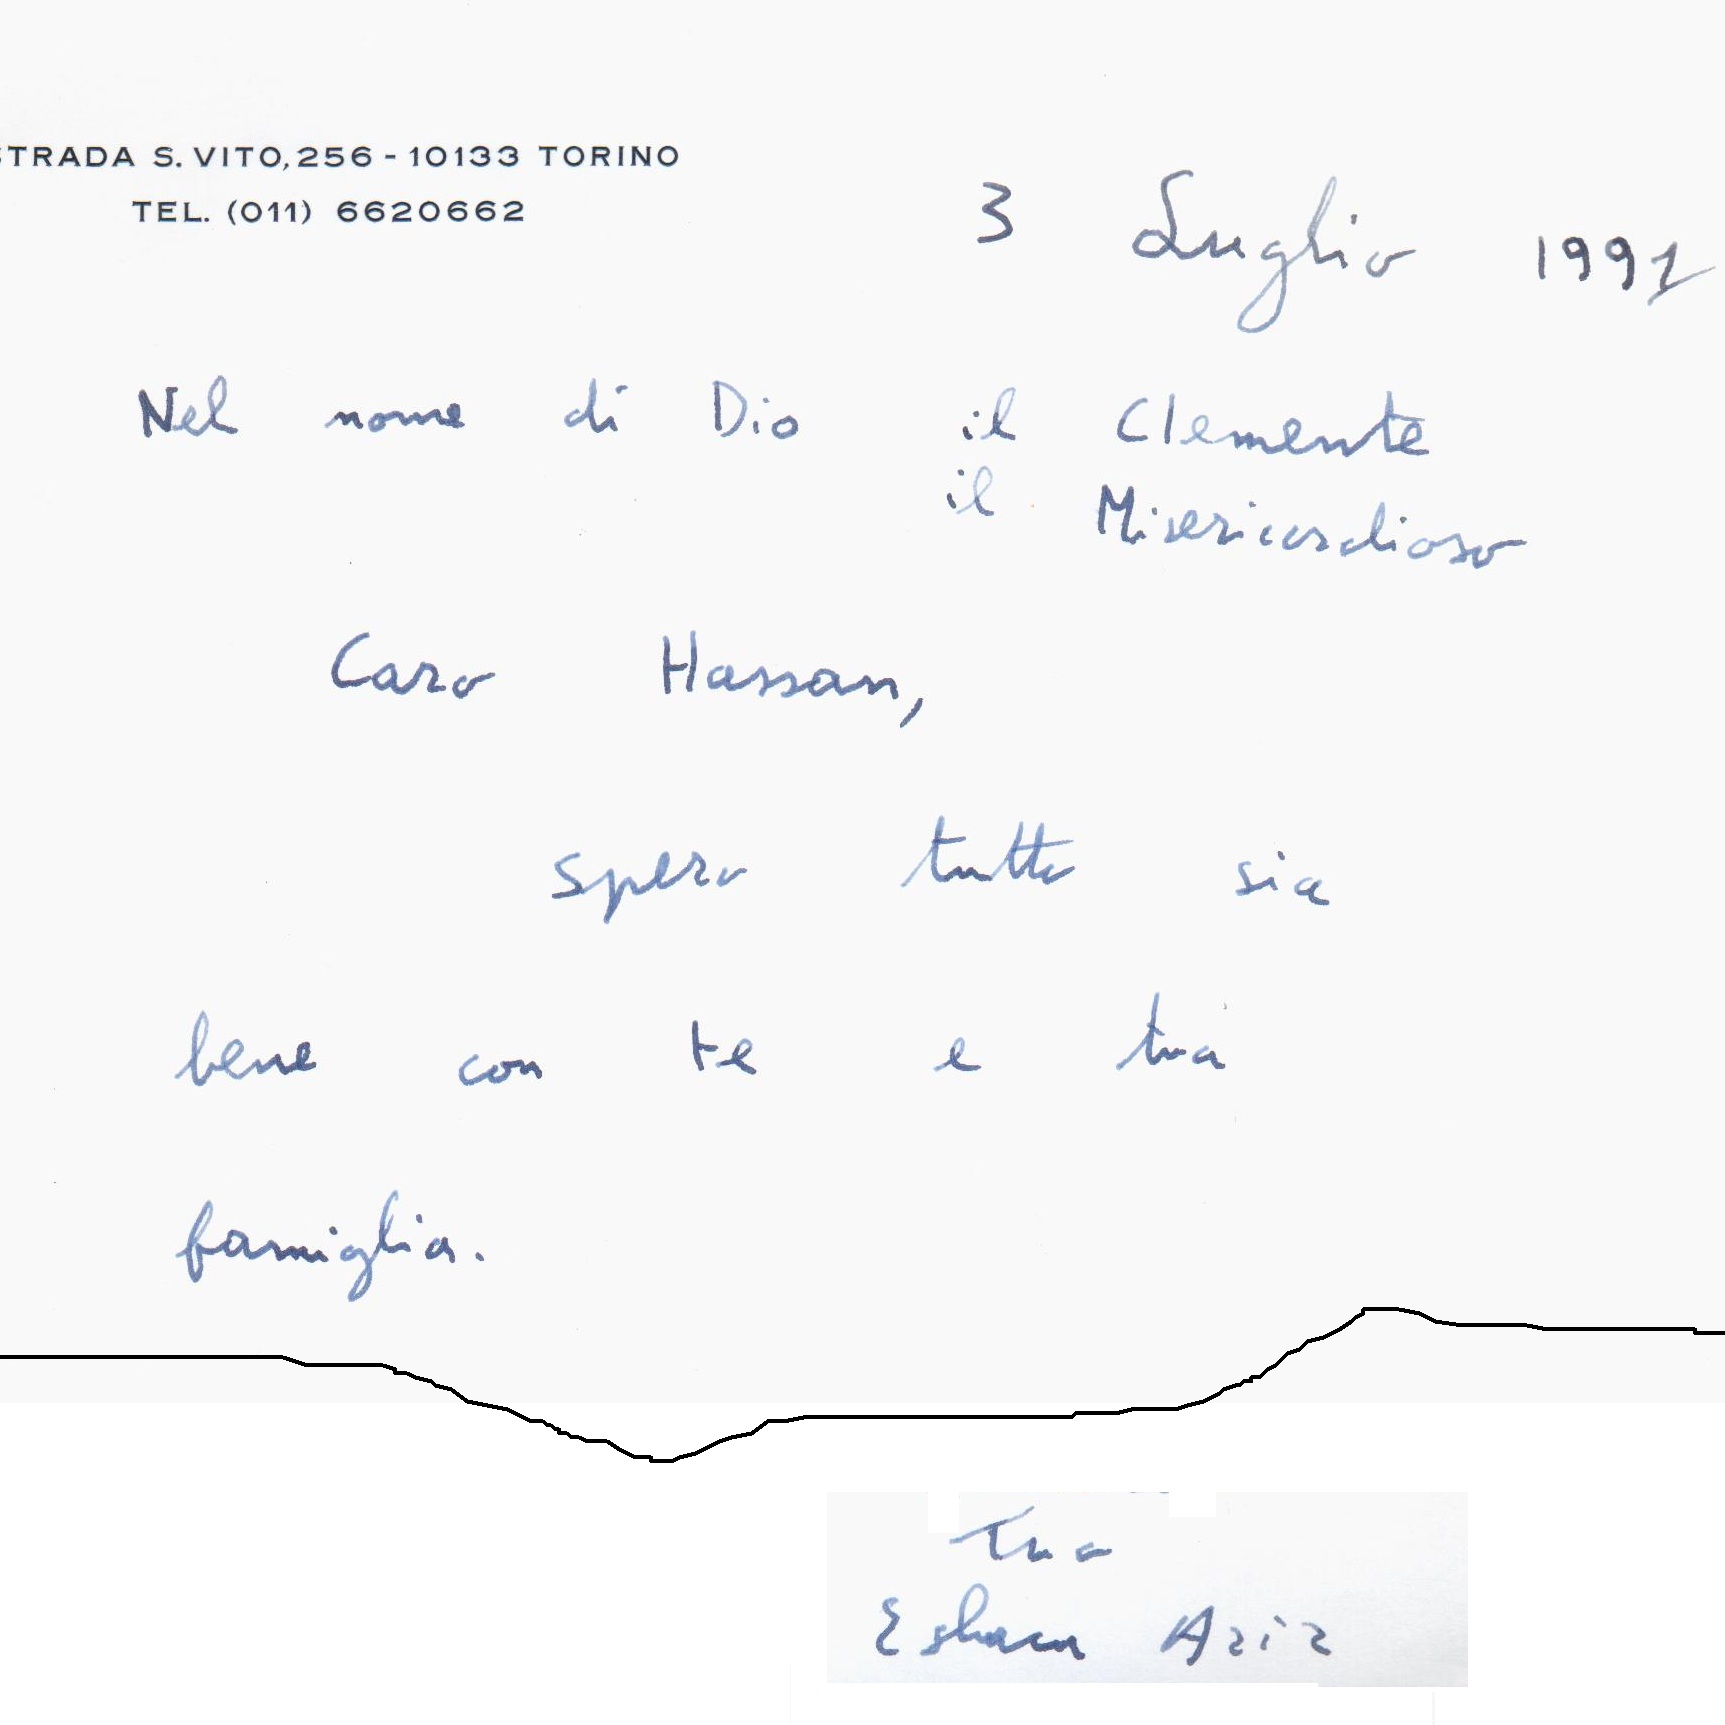 STRADA S. VITO, 256 - 10133 TORINO
TEL. (011) 6620662
3 Luglio 1991
Nel nome di Dio il Clemente
il Misericordioso
Caro Hassan,
spero tutto sia
bene con te e tua
famiglia.
Tuo
Esham Aziz